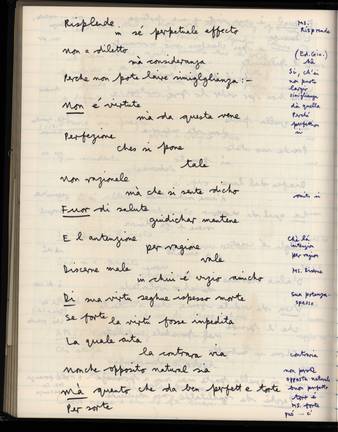 Risplende
in sé perpetuale effecto
non a diletto
mà consideranza
Perche non pote laire simiglglianza :-
Non é virtute
mà da questa vene
Perfezione
ches si pone
tale
non razionale
mà che si sente dicho
Fuor di salute
guidichar mantene
E l antenzione
per ragione
vale
Discerne male
in chui è vizio amicho
Di sua virtù seghue ispesso morte
Se forte
la virtù fosse impedita
La quale aita
la contrara via
Nonche opposito natural sia
Mà quanto che da ben perfett e torte
Per sorte
MS.
Risprende
(Ed. Ciciap.)
Sì, ch'ei
non pote
largir
simiglianza
da quella
Perché
perfettion
Chè la
intenzion
per ragion
MS. Discme
Sua potenza
spesso
contraria
non perchè
opposto naturale
buon perfetto
tort' è
MS. forte